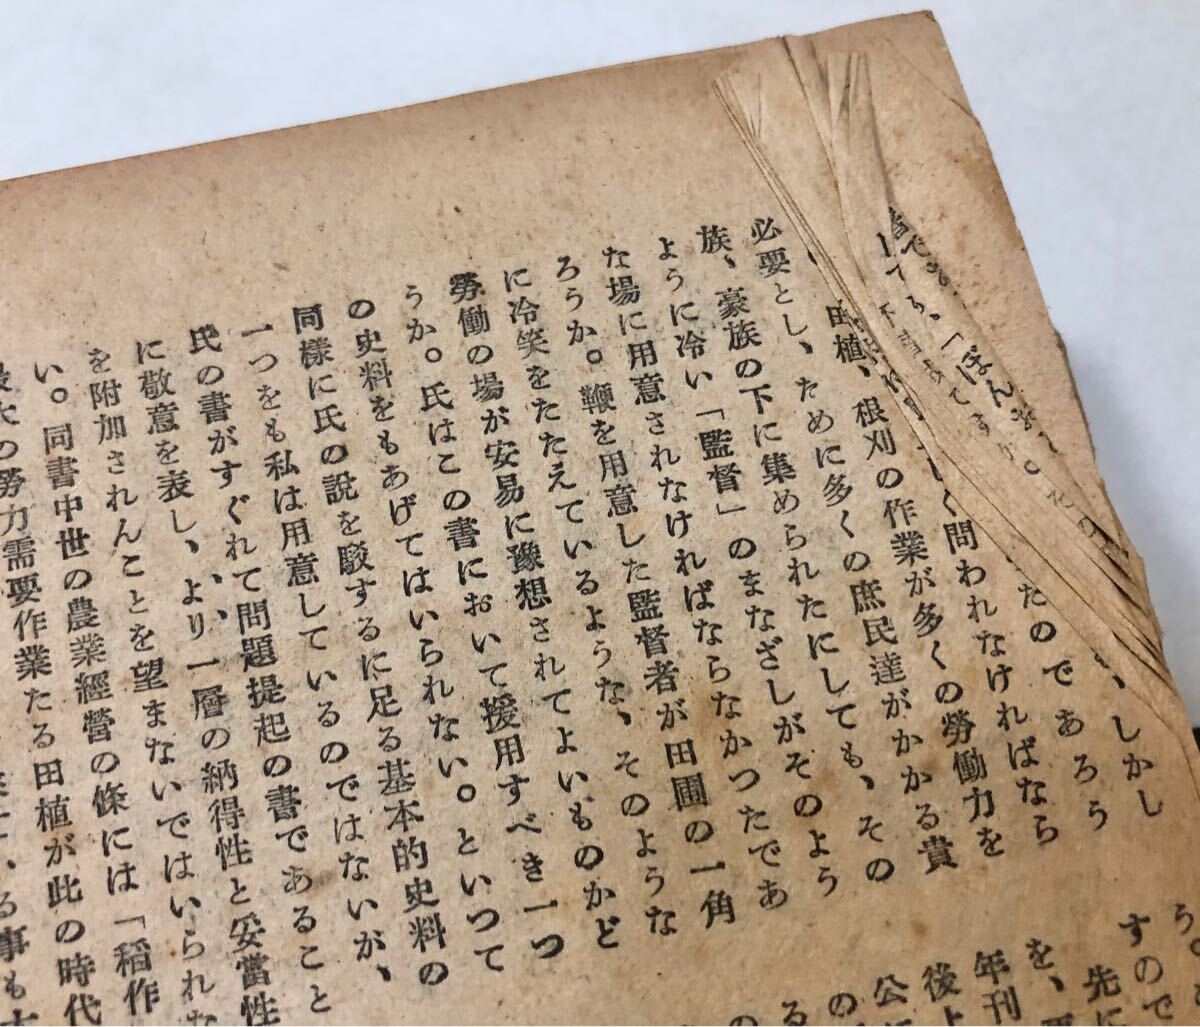 、しかし
たのであろう
く問われなければなら
田植、根刈の作業が多くの勞働力を
必要とし、ために多くの庶民達がかかる貴
族、豪族の下に集められたにしても、その
ように冷い「監督」のまなざしがそのよう
な場に用意されなければならなかつたであ
ろうか。鞭を用意した監督者が田圃の一角
に冷笑をたたえているような、そのような
勞働の場が安易に豫想されてよいものかど
うか。氏はこの書において援用すべき一つ
の史料をもあげてはいられない。といつて
同様に氏の說を駁するに足る基本的史料の
一つをも私は用意しているのではないが、
氏の書がすぐれて問題提起の書であること
に敬意を表し、より一層の納得性と妥當性
を附加されんことを望まないではいられな
い。同書中世の農業經營の條には「稻作
最大の勞力需要作業たる田植が此の時代
る事も
う。
すので
先に
を、
年刊
後よ
公
の
る
の